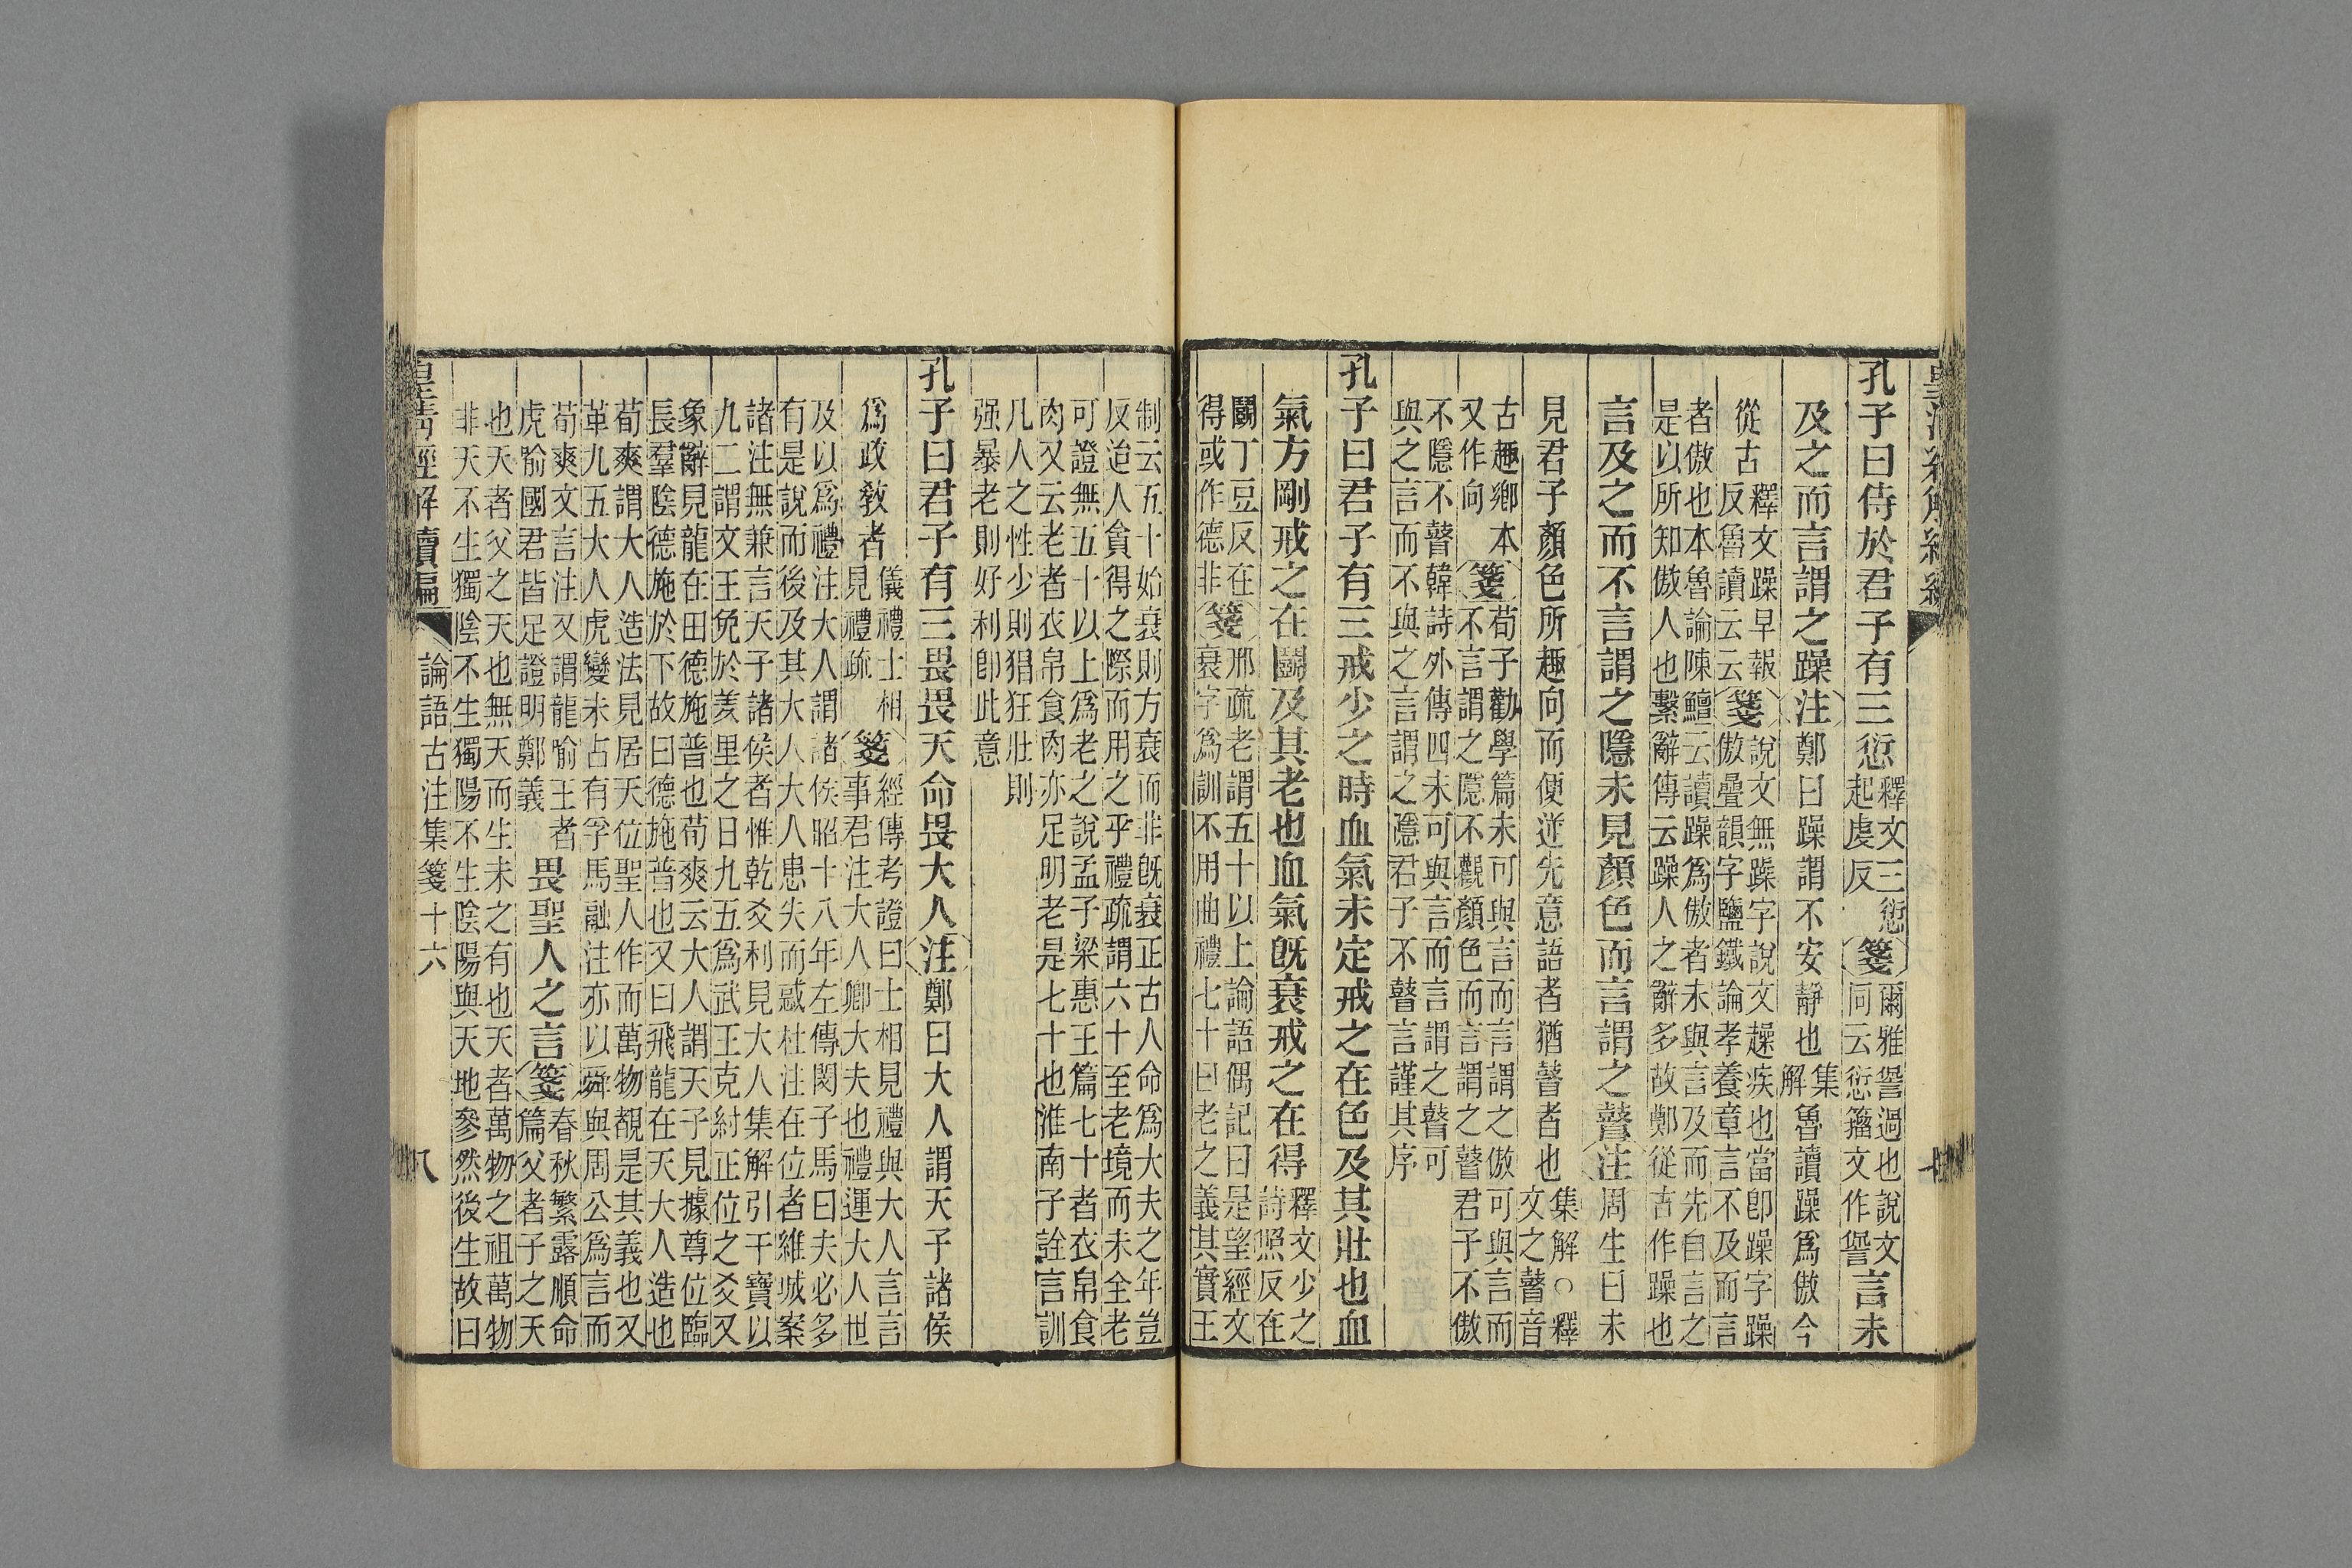 皇清經解續編
孔子曰侍於君子有三愆釋文三愆起虔反箋爾雅諐過也說文同云愆籀文作諐言未
及之而言謂之躁注鄭曰躁謂不安靜也集解魯讀躁爲傲今
從古釋文躁早報反魯讀云云箋說文無躁字說文趮疾也當卽躁字躁傲疊韻字鹽鐵論孝養章言不及而言
者傲也本魯論陳鱣云讀躁爲傲者未與言及而先自言之
是以所知傲人也繫辭傳云躁人之辭多故鄭從古作躁也
言及之而不言謂之隱未見顏色而言謂之瞽注周生曰未
見君子顏色所趣向而便逆先意語者猶瞽者也集解○釋文之瞽音
古趣鄉本又作向箋荀子勸學篇未可與言而言謂之傲可與言而不言謂之隱不觀顏色而言謂之瞽君子不傲
不隱不瞽韓詩外傳四未可與言而言謂之瞽可
與之言而不與之言謂之隱君子不瞽言謹其序
孔子曰君子有三戒少之時血氣未定戒之在色及其壯也血
氣方剛戒之在鬭及其老也血氣旣衰戒之在得釋文少之詩照反在
鬭丁豆反在得或作德非箋邢疏老謂五十以上論語偶記曰是望經文衰字爲訓不用曲禮七十曰老之義其實王
制云五十始衰則方衰而非旣衰正古人命爲大夫之年豈
反迨人貪得之際而用之乎禮疏謂六十至老境而未全老
可證無五十以上爲老之說孟子梁惠王篇七十者衣帛食
肉又云老者衣帛食肉亦足明老是七十也淮南子詮言訓
凡人之性少則猖狂壯則
强暴老則好利卽此意
孔子曰君子有三畏畏天命畏大人注鄭曰大人謂天子諸侯
爲政教者儀禮士相見禮疏箋經傳考證曰士相見禮與大人言言事君注大人卿大夫也禮運大人世
及以爲禮注大人謂諸侯昭十八年左傳閔子馬曰夫必多
有是說而後及其大人大人患失而惑杜注在位者維城案
諸注無兼言天子諸侯者惟乾爻利見大人集解引干寶以
九二謂文王免於羑里之日九五爲武王克紂正位之爻又
象辭見龍在田德施普也荀爽云大人謂天子見據尊位臨
長羣陰德施於下故曰德施普也又曰飛龍在天大人造也
荀爽謂大人造法見居天位聖人作而萬物覩是其義也又
革九五大人虎變未占有孚馬融注亦以舜與周公爲言而
荀爽文言注又謂龍喻王者虎喻國君皆足證明鄭義畏聖人之言箋春秋繁露順命篇父者子之天
也天者父之天也無天而生未之有也天者萬物之祖萬物
非天不生獨陰不生獨陽不生陰陽與天地參然後生故曰
皇清經解續編
論語古注集箋十六
八